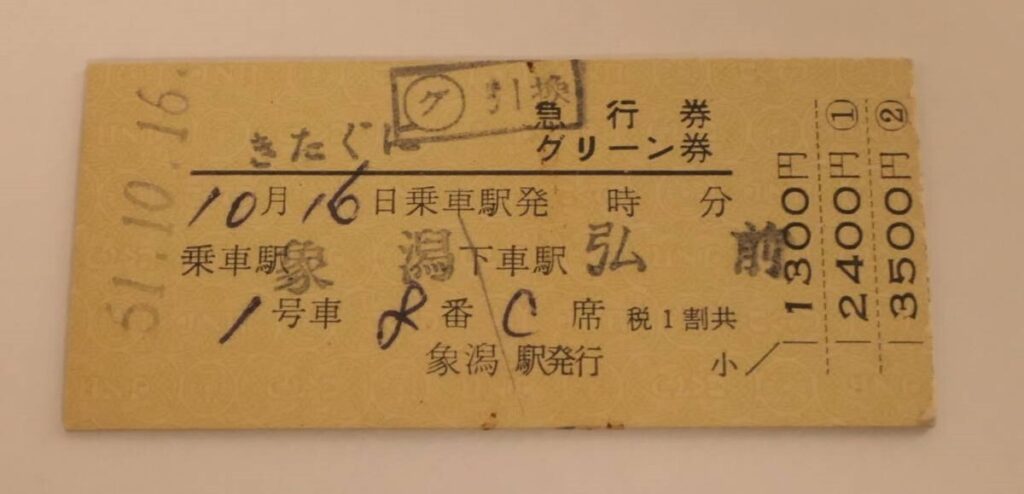 51.10.16.
グ 引換
急行券
きたぐに グリーン券
10月16日乗車駅発 時 分
乗車駅象潟下車駅弘前
1号車 8番 C席 税1割共
象潟駅発行 小
1300円
2400円①
3500円②